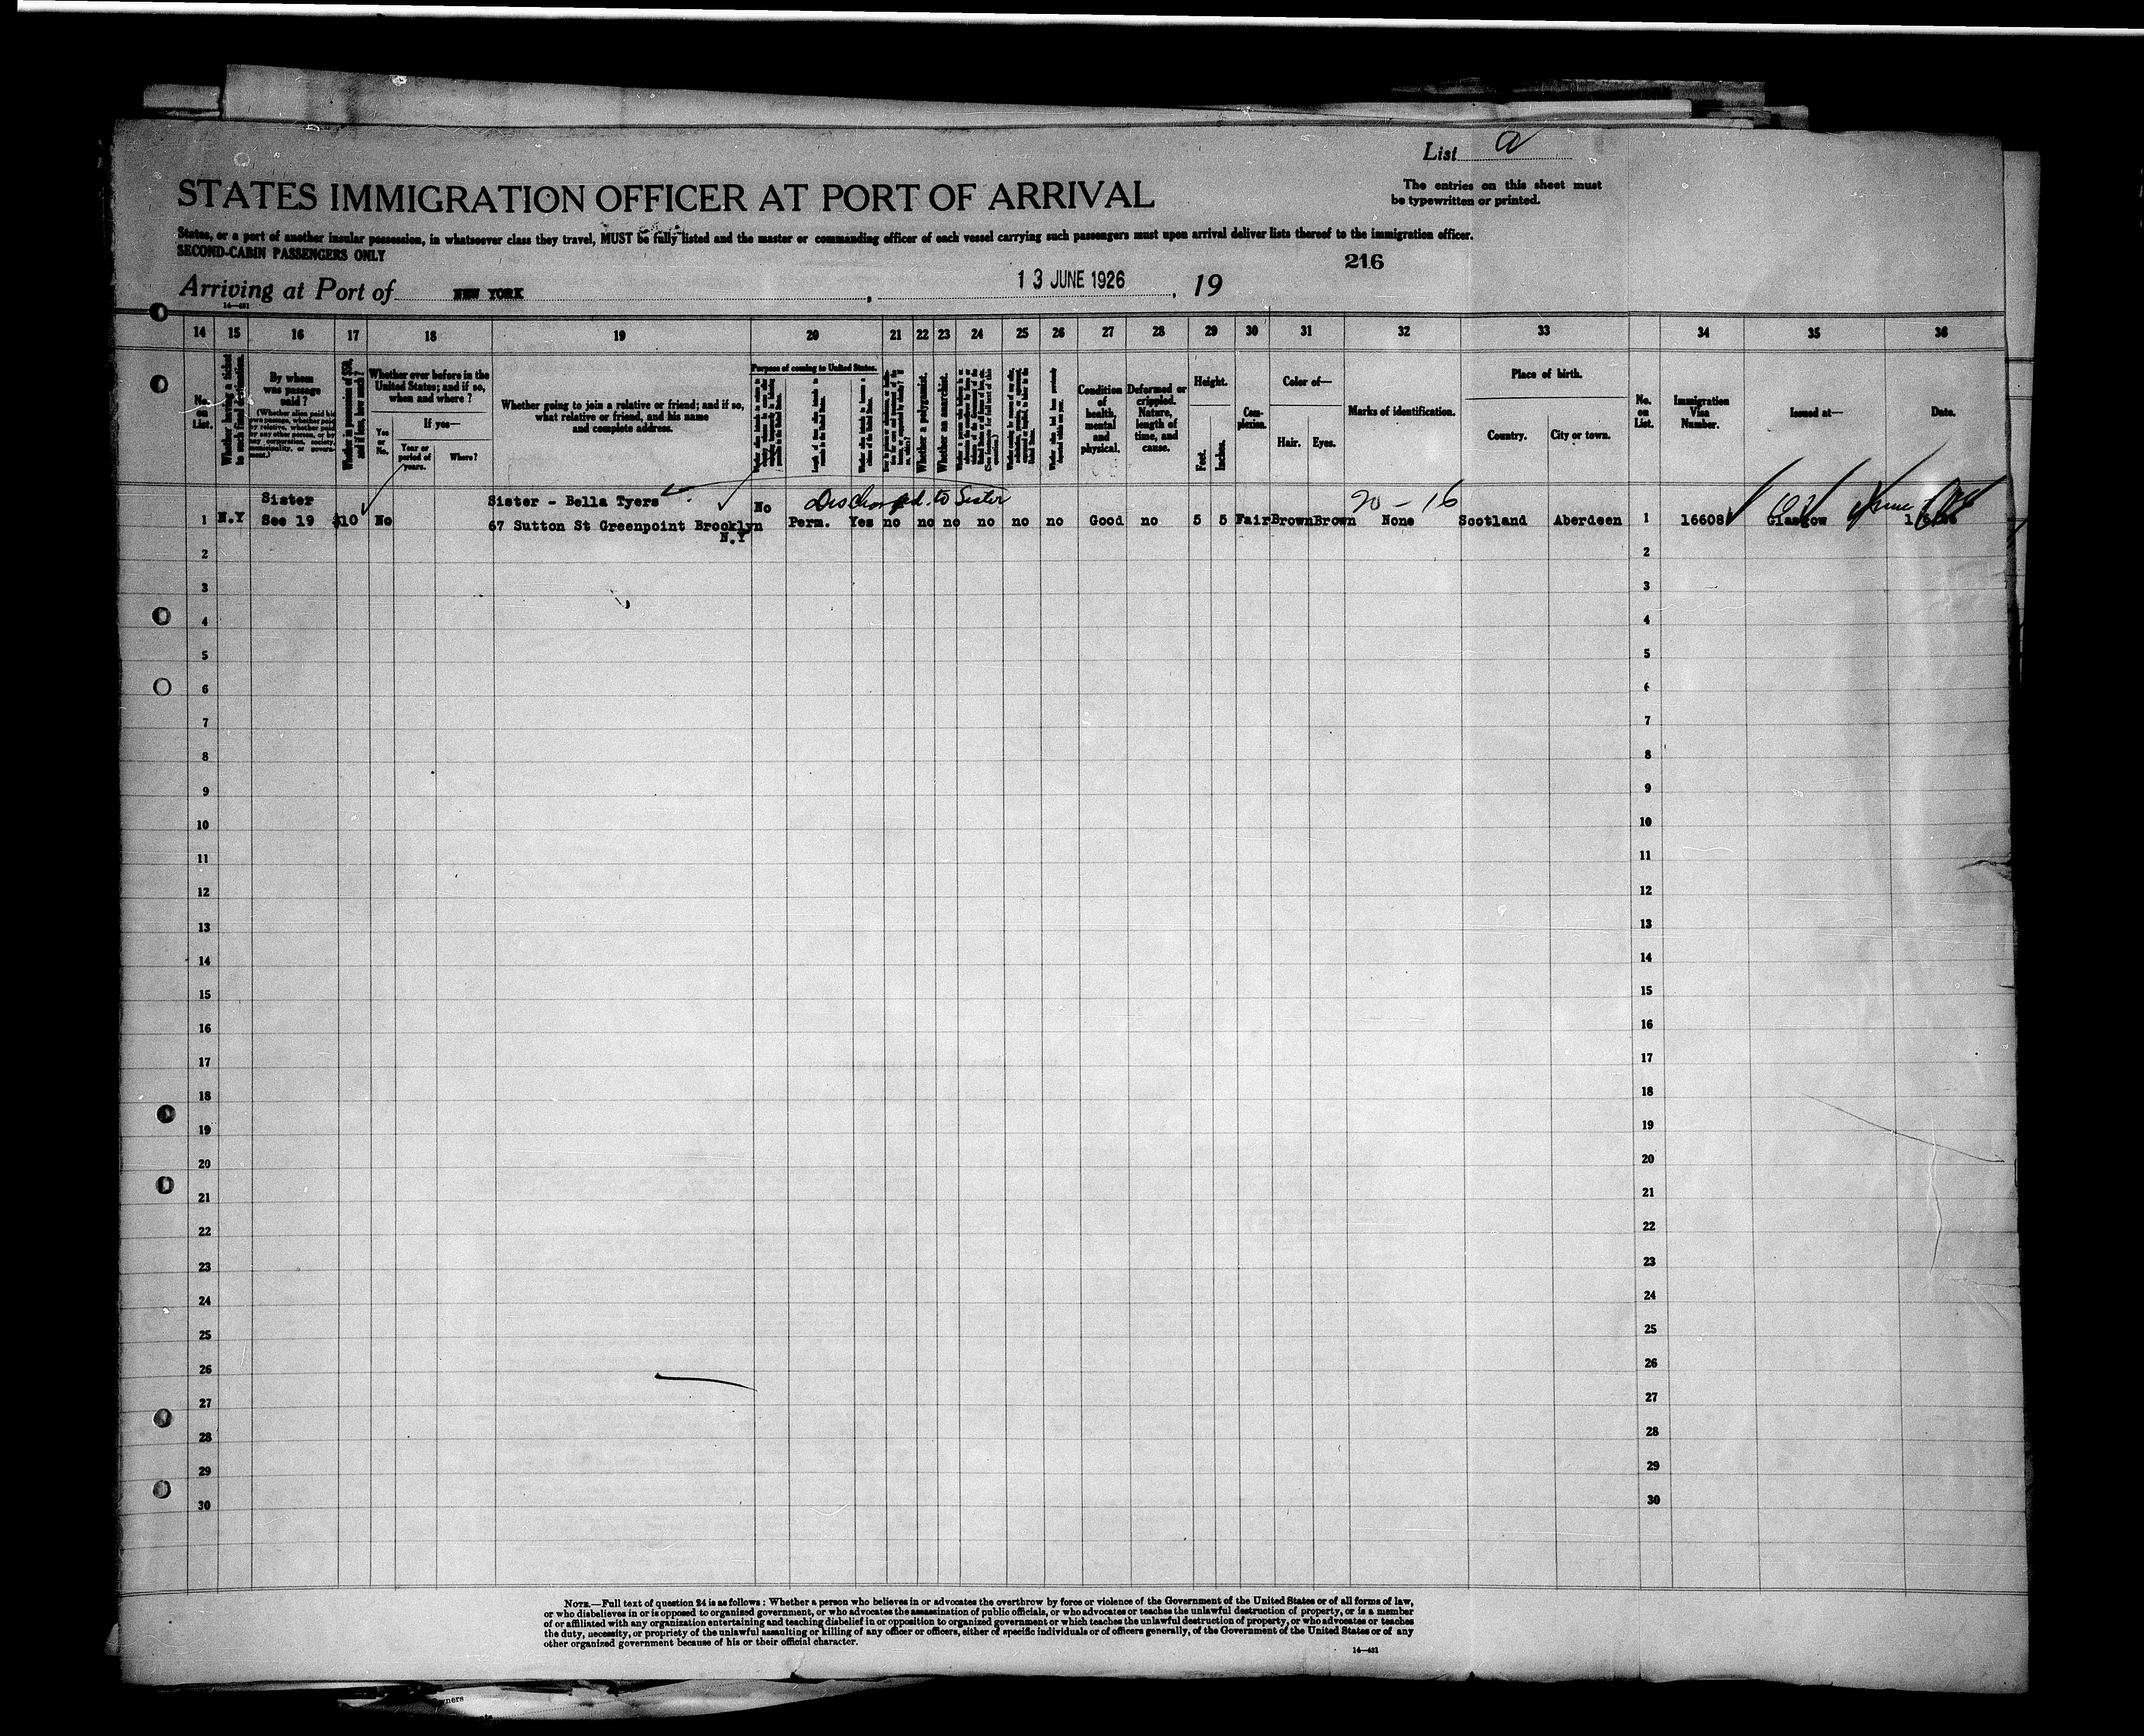 List a
STATES IMMIGRATION OFFICER AT PORT OF ARRIVAL
The entries on this sheet must
be typewritten or printed.
States, or a port of another insular possession, in whatsoever class they travel, MUST be fully listed and the master or commanding officer of each vessel carrying such passengers must upon arrival deliver lists thereof to the immigration officer.
SECOND-CABIN PASSENGERS ONLY
216
Arriving at Port of NEW YORK, 13 JUNE 1926, 19
14—431
14 15 16 17 18 19 20 21 22 23 24 25 26 27 28 29 30 31 32 33 34 35 36
No. on List.
By whom was passage paid?
Whether in possession of $50, and if less, how much?
Whether ever before in the United States; and if so, when and where?
Yes or No.
If yes—
Year or period of years.
Where?
Whether going to join a relative or friend; and if so, what relative or friend, and his name and complete address.
Purpose of coming to United States.
Whether a polygamist.
Whether an anarchist.
Condition of health, mental and physical.
Deformed or crippled. Nature, length of time, and cause.
Height.
Feet.
Inches.
Complexion.
Color of—
Hair.
Eyes.
Marks of identification.
Place of birth.
Country.
City or town.
No. on List.
Immigration Visa Number.
Issued at—
Date.
Sister
Sister - Bella Tyers
No
Discharged to Sister
20 - 16
1 N.Y See 19 $10 No 67 Sutton St Greenpoint Brooklyn Perm. Yes no no no no no no Good no 5 5 Fair Brown Brown None Scotland Aberdeen 1 16608 Glasgow
N.Y
2 2
3 3
4 4
5 5
6 6
7 7
8 8
9 9
10 10
11 11
12 12
13 13
14 14
15 15
16 16
17 17
18 18
19 19
20 20
21 21
22 22
23 23
24 24
25 25
26 26
27 27
28 28
29 29
30 30
NOTE.—Full text of question 24 is as follows: Whether a person who believes in or advocates the overthrow by force or violence of the Government of the United States or of all forms of law,
or who disbelieves in or is opposed to organized government, or who advocates the assassination of public officials, or who advocates or teaches the unlawful destruction of property, or is a member
of or affiliated with any organization entertaining and teaching disbelief in or opposition to organized government or which teaches the unlawful destruction of property, or who advocates or teaches
the duty, necessity, or propriety of the unlawful assaulting or killing of any officer or officers, either of specific individuals or of officers generally, of the Government of the United States or of any
other organized government because of his or their official character.
14—431